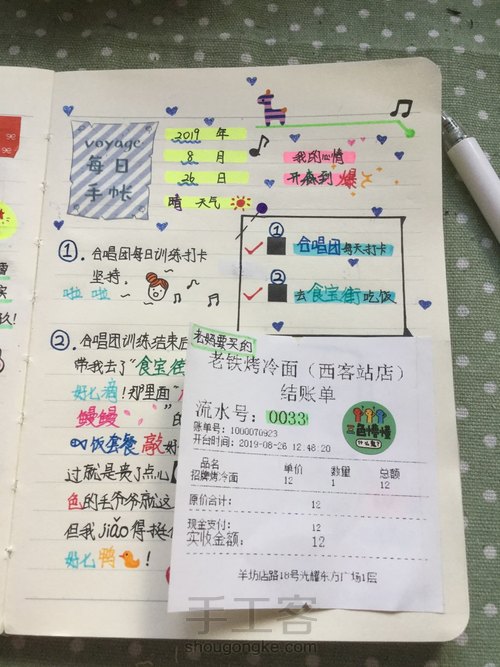 voyage
每日
手帐
2019 年
8 月
26 日
晴 天气
我的心情
开森到爆
① 合唱团每天打卡
② 去食宝街吃饭
①. 合唱团每日训练打卡
坚持,
啦 啦
②. 合唱团训练结束后
带我去了“食宝街
好么滴!那里面“
鳗鳗
饭套餐 敲好
过就是贵了点儿
色的
但我jiǎo得挺
好么鸭!
老妈要买的
老铁烤冷面(西客站店)
结账单
流水号: 0033
账单号: 1000070923
开台时间: 2019-08-26 12:46:20
三色慢慢
什么鬼?
品名 单价 数量 总额
招牌烤冷面 12 1 12
原价合计: 12
现金支付: 12
实收金额: 12
羊坊店路18号光耀东方广场1层
手工客
shougongke.com